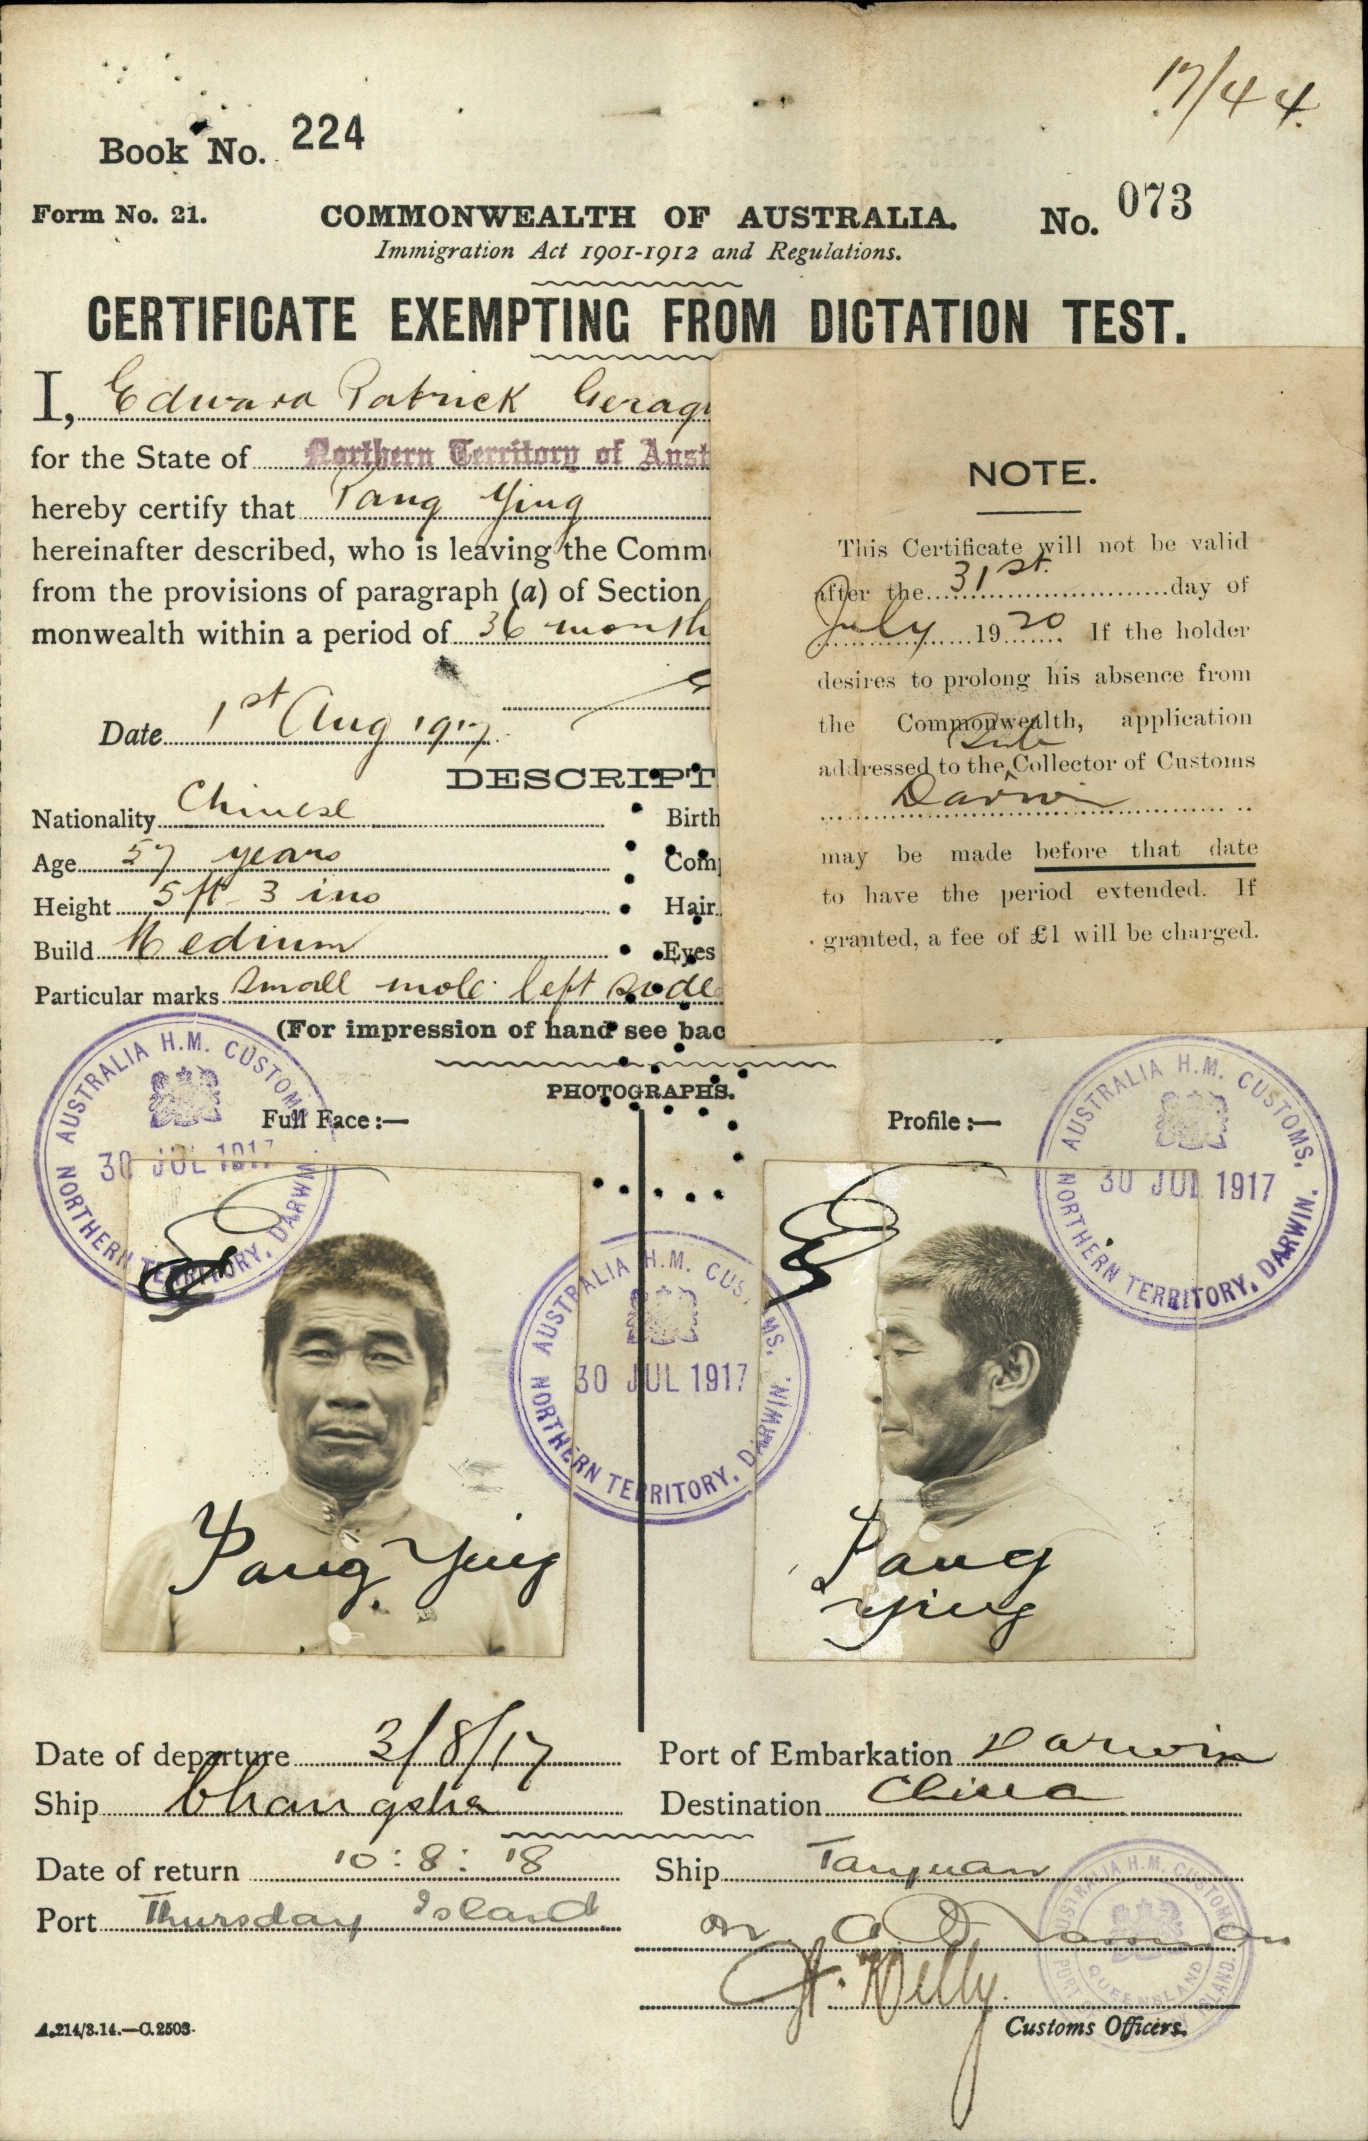 17/44.
Book No. 224
Form No. 21.
COMMONWEALTH OF AUSTRALIA.
No. 073
Immigration Act 1901-1912 and Regulations.
CERTIFICATE EXEMPTING FROM DICTATION TEST.
I, Edward Patrick Gerag
for the State of Northern Territory of Aust
hereby certify that Pang Ying
hereinafter described, who is leaving the Comm
from the provisions of paragraph (a) of Section
monwealth within a period of 36 month
Date 1st Aug 1917
NOTE.
This Certificate will not be valid
after the 31st. day of
July 1920. If the holder
desires to prolong his absence from
the Commonwealth, application
Sub
addressed to the Collector of Customs
Darwin
may be made before that date
to have the period extended. If
granted, a fee of £1 will be charged.
DESCRIPT
Nationality Chinese
Birth
Age 57 years
Com
Height 5 ft 3 ins
Hair
Build Medium
Eyes
Particular marks Small mole left side
(For impression of hand see bac
PHOTOGRAPHS.
Full Face :—
Profile :—
AUSTRALIA H.M. CUSTOMS,
30 JUL 1917
NORTHERN TERRITORY, DARWIN.
AUSTRALIA H.M. CUSTOMS,
30 JUL 1917
NORTHERN TERRITORY, DARWIN.
AUSTRALIA H.M. CUSTOMS,
30 JUL 1917
NORTHERN TERRITORY, DARWIN.
Pang Ying
Pang
Ying
Date of departure 3/8/17
Port of Embarkation Darwin
Ship Changsha
Destination China
Date of return 10:8:18
Ship Taiyuan
Port Thursday Island
AUSTRALIA H.M. CUSTOMS
QUEENSLAND
PORT ISLAND.
Customs Officers.
A.214/3.14.—C.2503.